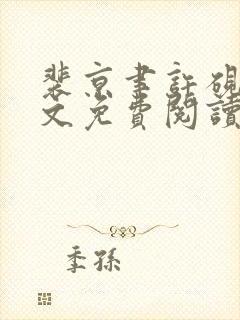 裴京聿許硯
文免費閱讀
季孫